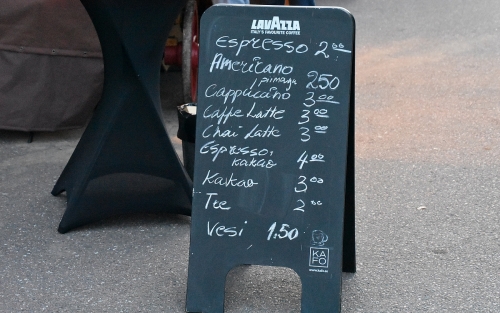 LAVAZZA
ITALY'S FAVOURITE COFFEE
Espresso 2.00
Americano
piimaga 2.50
Cappucino 3.00
Caffe Latte 3.00
Chai Latte 3.00
Espresso,
kakao 4.00
Kakao 3.00
Tee 2.00
Vesi 1.50
KA
FO